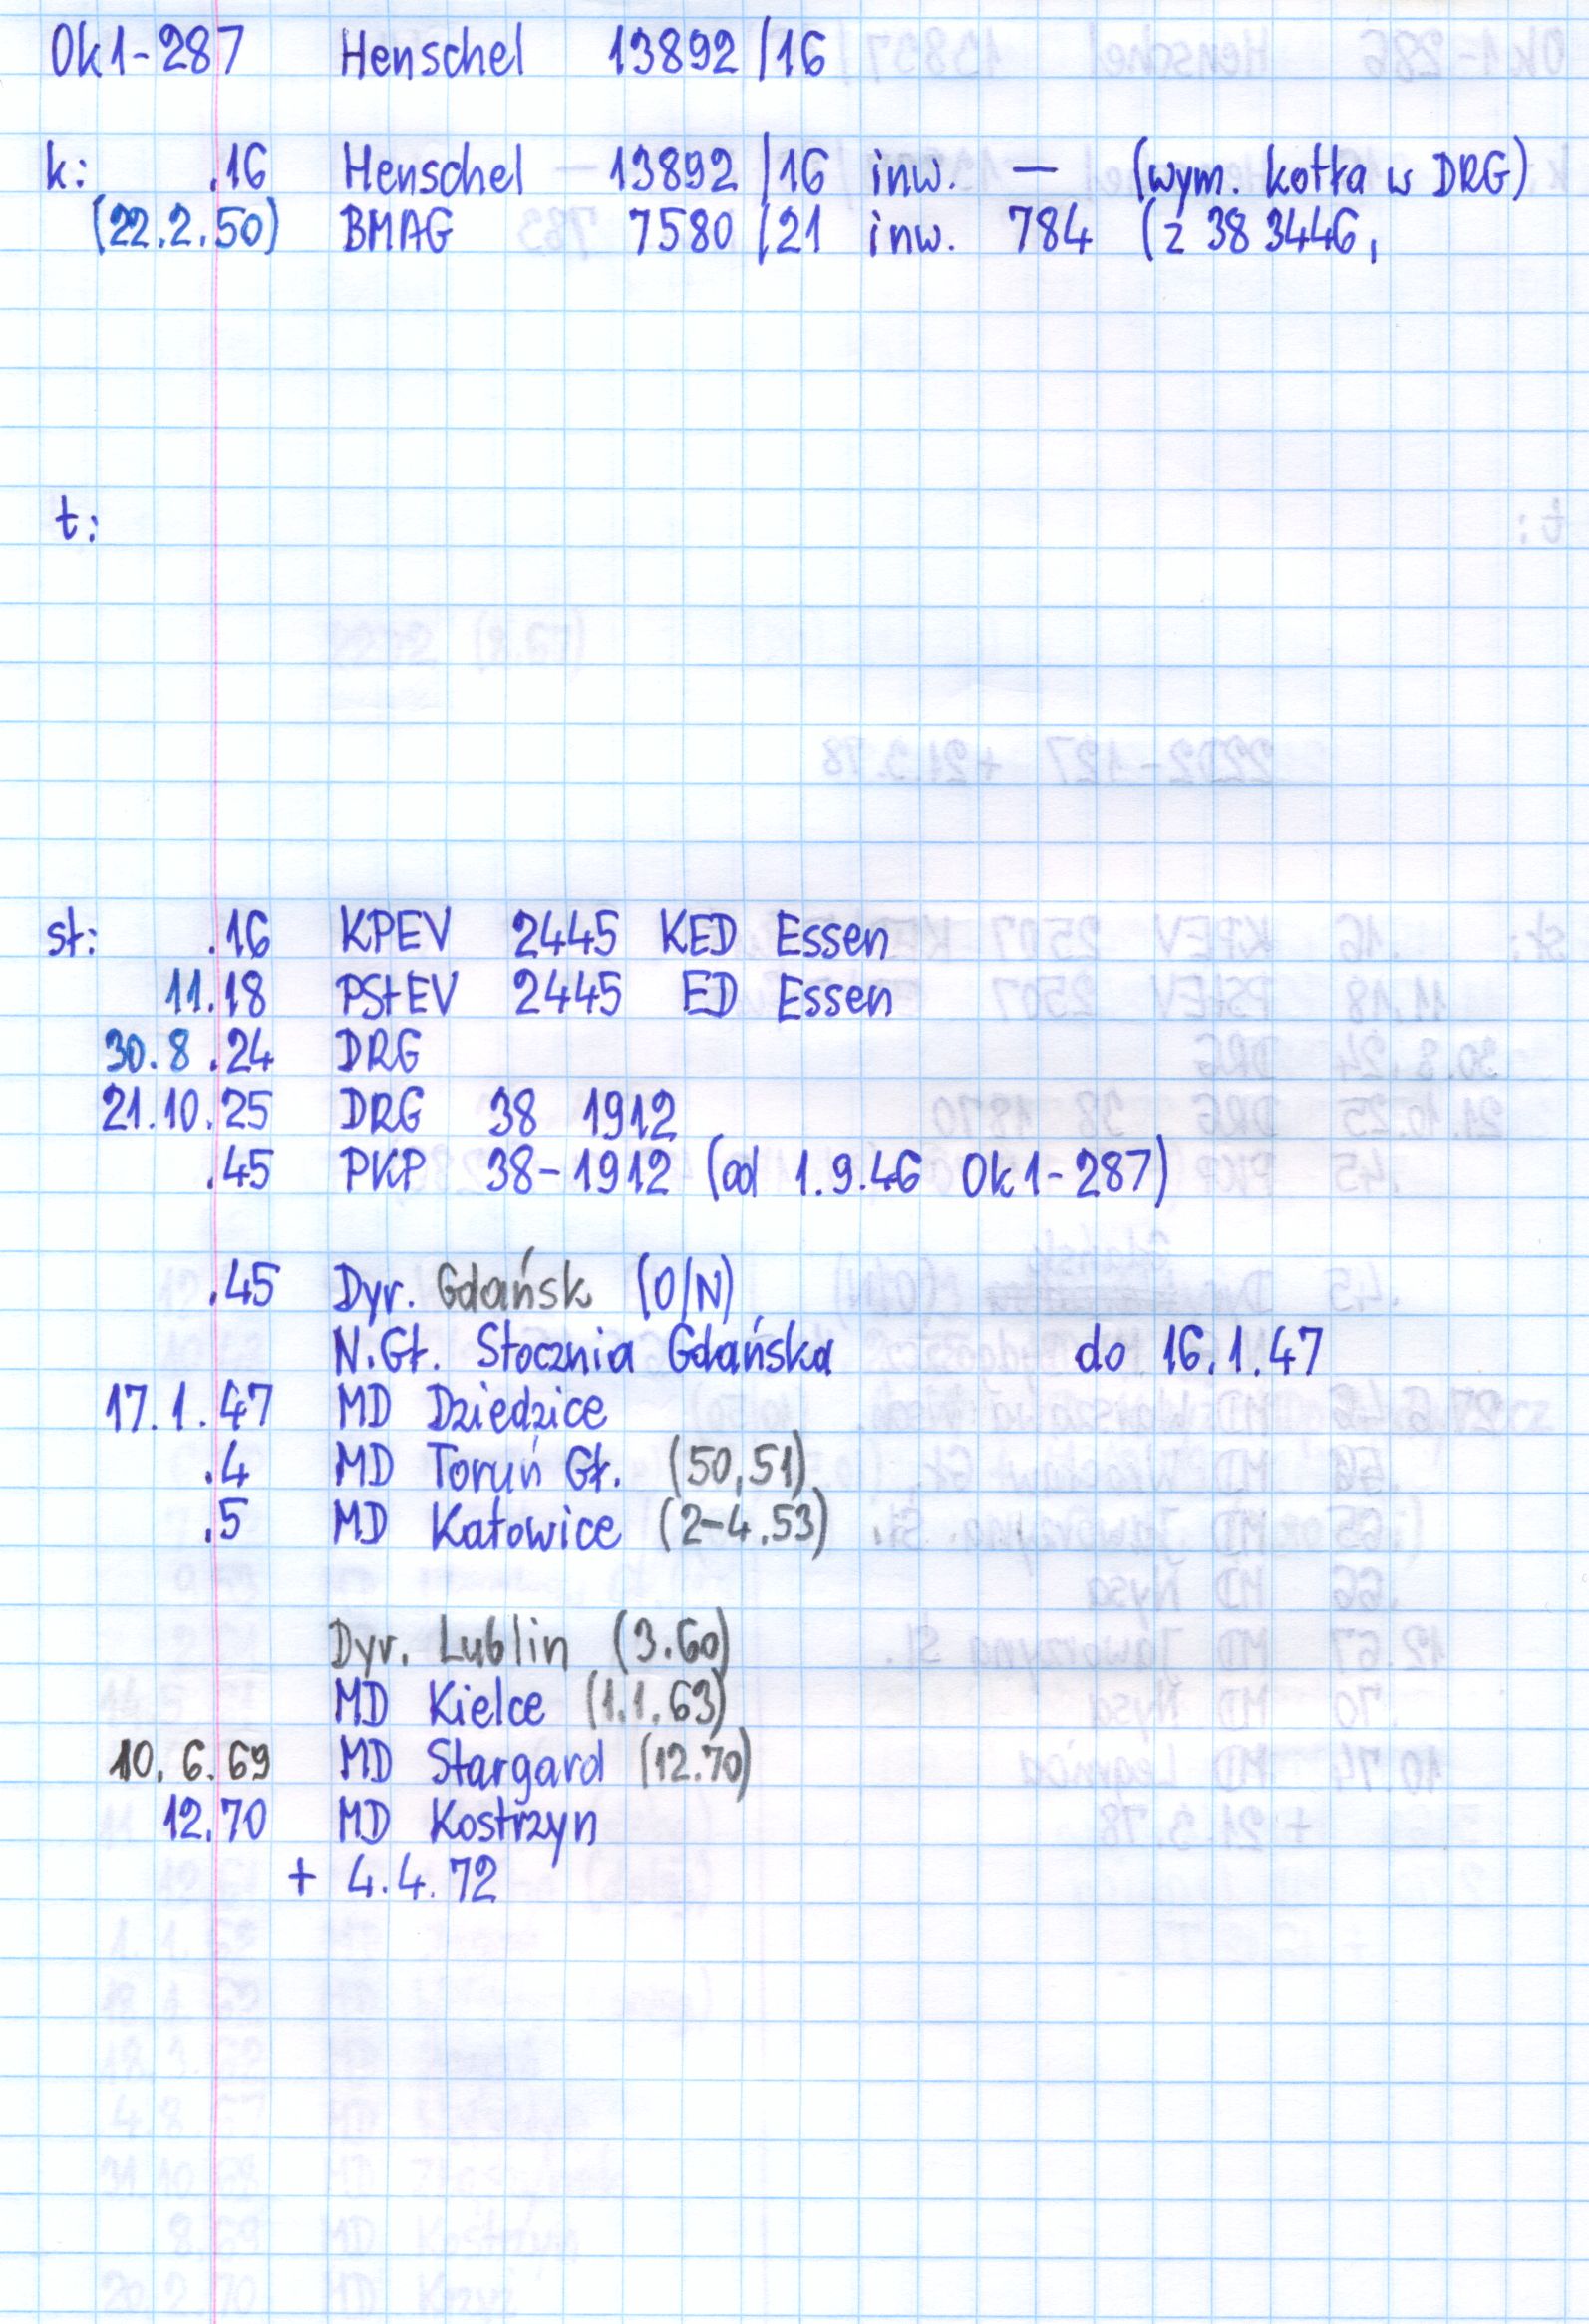 Ok1-287 Henschel 13892/16
k: .16 Henschel 13892/16 inw. — (wym. kotła w DRG)
(22.2.50) BMAG 7580/21 inw. 784 (z 38 3446,
t:
st: .16 KPEV 2445 KED Essen
11.18 PStEV 2445 ED Essen
30.8.24 DRG
21.10.25 DRG 38 1912
.45 PKP 38-1912 (od 1.9.46 Ok1-287)
.45 Dyr. Gdańsk (O/N)
N.Gł. Stocznia Gdańska do 16.1.47
17.1.47 MD Dziedzice
.4 MD Toruń Gł. (50,51)
.5 MD Katowice (2-4.53)
Dyr. Lublin (3.60)
MD Kielce (1.1.63)
10.6.69 MD Stargard (12.70)
12.70 MD Kostrzyn
+ 4.4.72